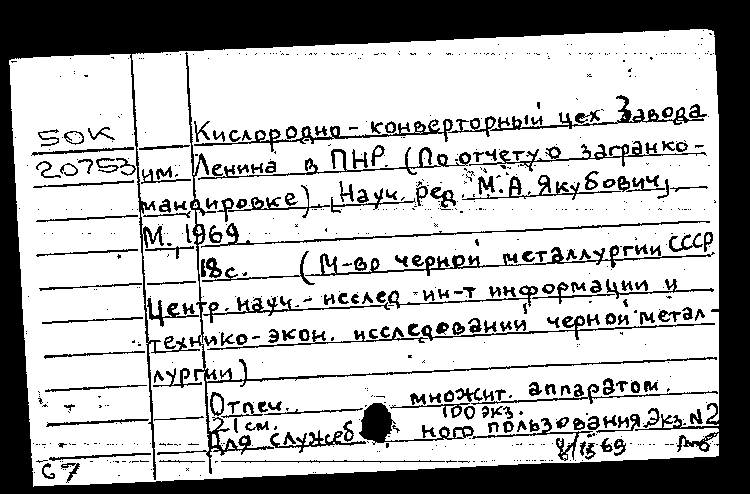 50К Кислородно-конверторный цех Завода
20753 им. Ленина в ПНР. (По отчету о загранко-
мандировке). [Науч. ред. М.А. Якубович],
М., 1969.
18с. (М-во черной металлургии СССР
Центр. науч.-исслед. ин-т информации и
технико-экон. исследований черной метал-
лургии)
Отпеч. множит. аппаратом.
21 см. 100 экз.
Для служебного пользования. Экз. N2
69
67